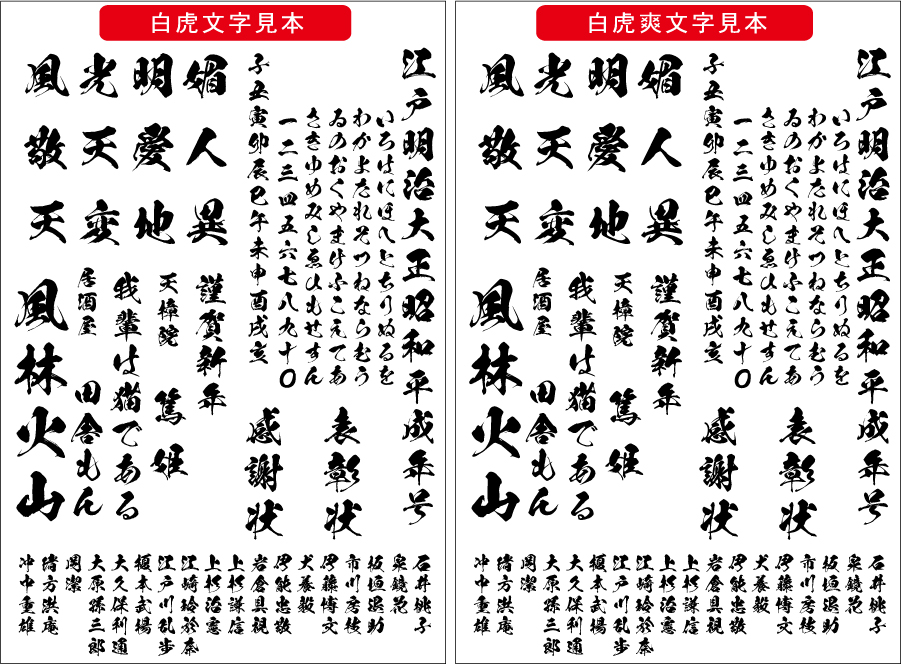 白虎文字見本
江戸明治大正昭和平成年号
いろはにほへとちりぬるを
わかよたれそつねならむう
ゐのおくやまけふこえてあ
さきゆめみしゑひもせすん
一二三四五六七八九十〇
子丑寅卯辰巳午未申酉戌亥
表彰状
感謝状
風光明媚
敬天愛人
天変地異
謹賀新年
天樟院
篤姫
我輩は猫である
居酒屋
田舎もん
風林火山
石井桃子
泉鏡花
板垣退助
市川房枝
伊藤博文
犬養毅
伊能忠敬
岩倉具視
上杉謙信
上杉治憲
江崎玲於奈
江戸川乱歩
榎本武揚
大久保利通
大原孫三郎
岡潔
緒方洪庵
沖中重雄
白虎爽文字見本
江戸明治大正昭和平成年号
いろはにほへとちりぬるを
わかよたれそつねならむう
ゐのおくやまけふこえてあ
さきゆめみしゑひもせすん
一二三四五六七八九十〇
子丑寅卯辰巳午未申酉戌亥
表彰状
感謝状
風光明媚
敬天愛人
天変地異
謹賀新年
天樟院
篤姫
我輩は猫である
居酒屋
田舎もん
風林火山
石井桃子
泉鏡花
板垣退助
市川房枝
伊藤博文
犬養毅
伊能忠敬
岩倉具視
上杉謙信
上杉治憲
江崎玲於奈
江戸川乱歩
榎本武揚
大久保利通
大原孫三郎
岡潔
緒方洪庵
沖中重雄